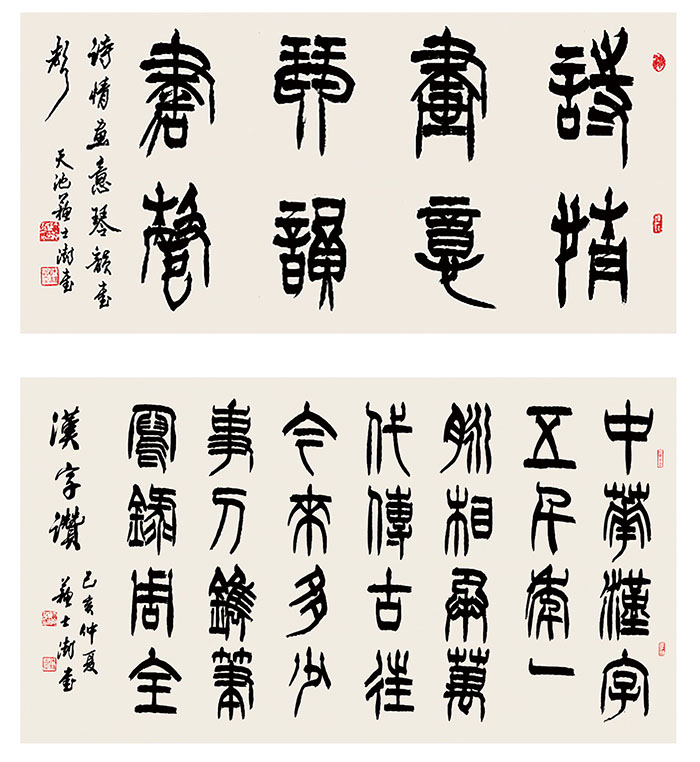 詩情
畫意
琴韻
書聲
詩情畫意琴韻書
聲
天池蘇士澍書
中華漢字
五千年一
脈相承萬
代傳古往
今來多少
事刀鐫筆
寫錄周全
漢字讚
己亥仲夏
蘇士澍書